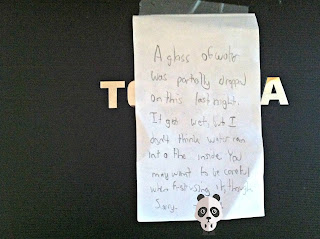 A glass of water
was partially dropped
on this last night.
TO A
It got wet, but I
don't think water ran
into the inside. You
may want to be careful
when first using it, though
Sorry.